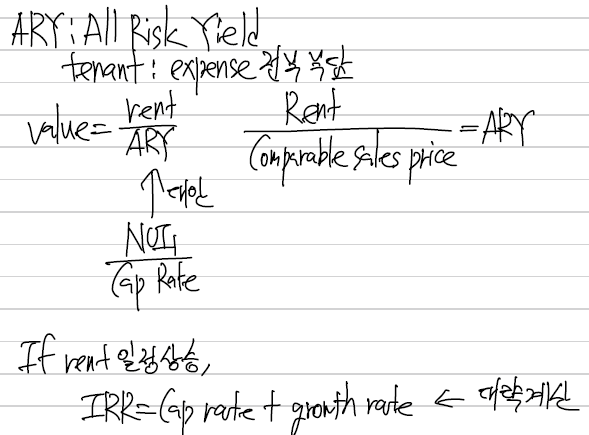 ARY : All Risk Yield
tenant : expense 전부 부담
value = rent / ARY
Rent / Comparable sales price = ARY
↑ 대안
NOI₁ / Cap Rate
If rent 일정상승,
IRR = Cap rate + growth rate ← 대략계산